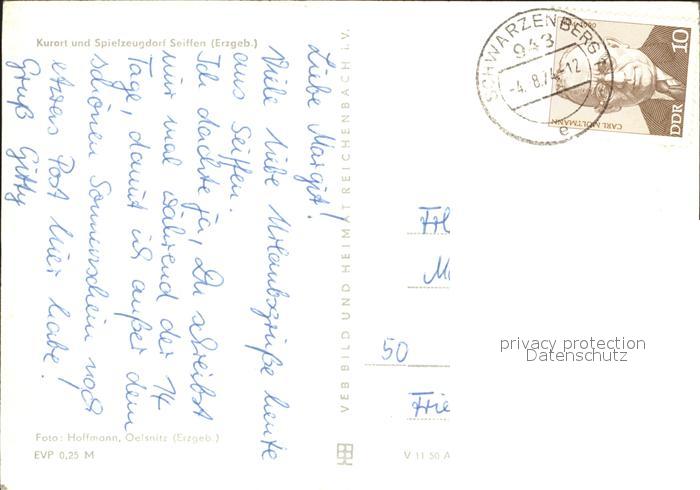 Kurort und Spielzeugdorf Seiffen (Erzgeb.)
Liebe Margit!
Viele liebe Urlaubsgrüße heute
aus Seiffen.
Ich dachte ja, Du schreibst
mir mal während der 14
Tage, damit ich außer dem
schönen Sonnenschein noch
etwas Post hier habe!
Gruß Gitty
Foto: Hoffmann, Oelsnitz (Erzgeb.)
EVP 0,25 M
VEB BILD UND HEIMAT REICHENBACH I. V.
V 11 50 A
SCHWARZENBERG
943
-4. 8.74-12
e
10
DDR
CARL MOLTMANN
Frl
M
50
Frie
privacy protection
Datenschutz